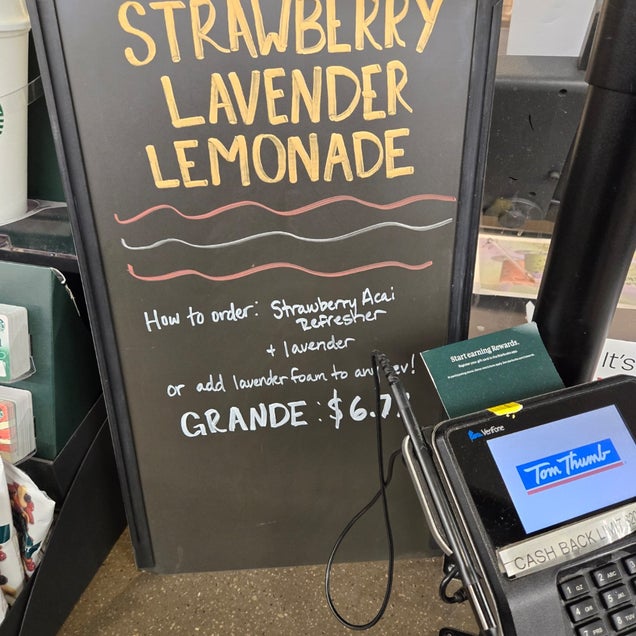 STRAWBERRY
LAVENDER
LEMONADE
How to order: Strawberry Acai
Refresher
+ lavender
or add lavender foam to any
GRANDE: $6.7
Start earning Rewards.
It's
Verifone
Tom Thumb
CASH BACK LIMIT
1 QZ
2 ABC
4 GHI
5 JKL
8 TUV